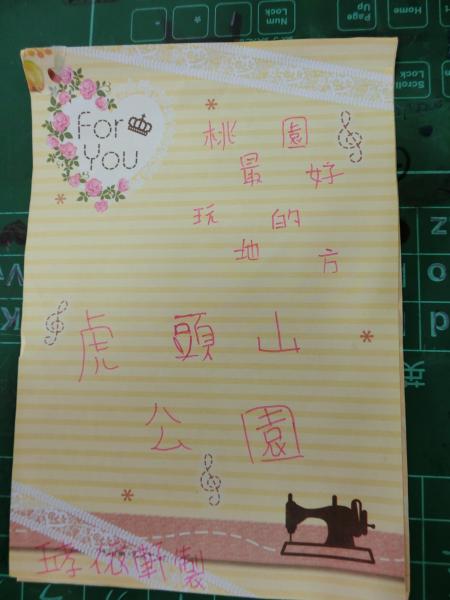 For
You
桃園
最好
玩的
地方
虎頭山
公園
軒製
Num
Lock
Page
Up
Home
Scroll
Lock
*
N
K
d
英